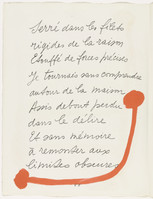 Serré dans les filets
rigides de la raison
Etouffé de forces précises
Je tournais sans comprendre
autour de la maison
Assis debout perdu
dans le délire
Et sans mémoire
à remonter aux
limites obscures